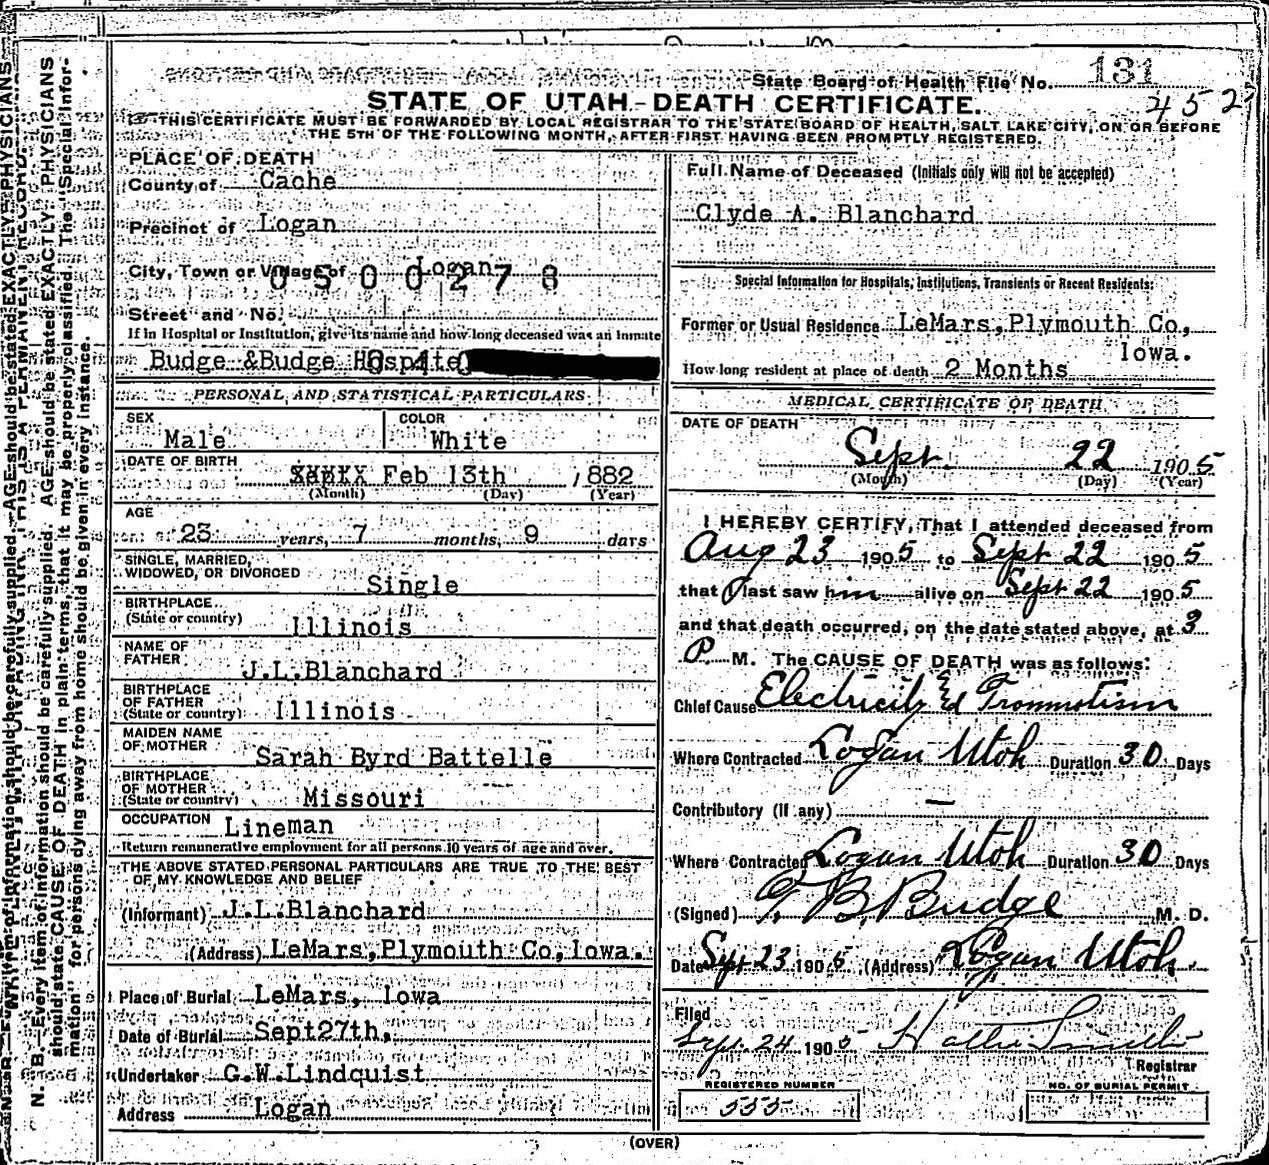 State Board of Health File No. 131
452
STATE OF UTAH - DEATH CERTIFICATE.
THIS CERTIFICATE MUST BE FORWARDED BY LOCAL REGISTRAR TO THE STATE BOARD OF HEALTH, SALT LAKE CITY, ON OR BEFORE
THE 5TH OF THE FOLLOWING MONTH, AFTER FIRST HAVING BEEN PROMPTLY REGISTERED.
PLACE OF DEATH
County of Cache
Precinct of Logan
City, Town or Village of Logan
0500278
Street and No.
If in Hospital or Institution, give its name and how long deceased was an inmate
Budge &Budge Hospital
PERSONAL AND STATISTICAL PARTICULARS
SEX Male
COLOR White
DATE OF BIRTH Feb 13th 1882
(Month) (Day) (Year)
AGE
23 years, 7 months, 9 days
SINGLE, MARRIED,
WIDOWED, OR DIVORCED Single
BIRTHPLACE
(State or country) Illinois
NAME OF
FATHER J.L.Blanchard
BIRTHPLACE
OF FATHER
(State or country) Illinois
MAIDEN NAME
OF MOTHER Sarah Byrd Battelle
BIRTHPLACE
OF MOTHER
(State or country) Missouri
OCCUPATION Lineman
Return remunerative employment for all persons 10 years of age and over.
THE ABOVE STATED PERSONAL PARTICULARS ARE TRUE TO THE BEST
OF MY KNOWLEDGE AND BELIEF
(Informant) J.L.Blanchard
(Address) LeMars,Plymouth Co,Iowa.
Place of Burial LeMars, Iowa
Date of Burial Sept27th,
Undertaker G.W.Lindquist
Address Logan
Full Name of Deceased (Initials only will not be accepted)
Clyde A. Blanchard
Special Information for Hospitals, Institutions, Transients or Recent Residents:
Former or Usual Residence LeMars,Plymouth Co,
Iowa.
How long resident at place of death 2 Months
MEDICAL CERTIFICATE OF DEATH
DATE OF DEATH
Sept. 22 1905
(Month) (Day) (Year)
I HEREBY CERTIFY, That I attended deceased from
Aug 23 1905 to Sept 22 1905
that I last saw him alive on Sept 22 1905
and that death occurred, on the date stated above, at 3
P. M. The CAUSE OF DEATH was as follows:
Chief Cause Electricity
Where Contracted Logan Utah Duration 30 Days
Contributory (if any) —
Where Contracted Logan Utah Duration 30 Days
(Signed) T B Budge M. D.
Date Sept 23 1905 (Address) Logan Utah.
Filed
Sept. 24 1905
Registrar
REGISTERED NUMBER
555
NO. OF BURIAL PERMIT
(OVER)
N. B.—Every item of information should be carefully supplied. AGE should be stated EXACTLY. PHYSICIANS
should state CAUSE OF DEATH in plain terms, that it may be properly classified. The "Special Infor-
mation" for persons dying away from home should be given in every instance.